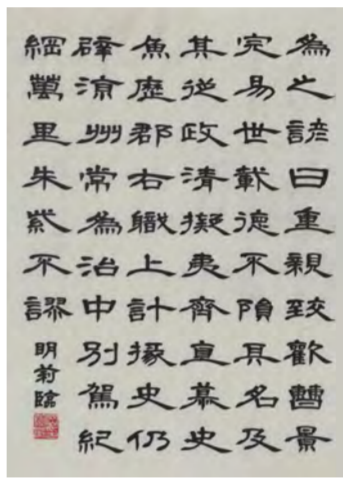 為之諺曰重親致歡曹景
完易世載德不隕其名及
其從政清擬夷齊直慕史
魚歷郡右職上計掾史仍
辟涼州常為治中別駕紀
綱萬里朱紫不謬
明臨